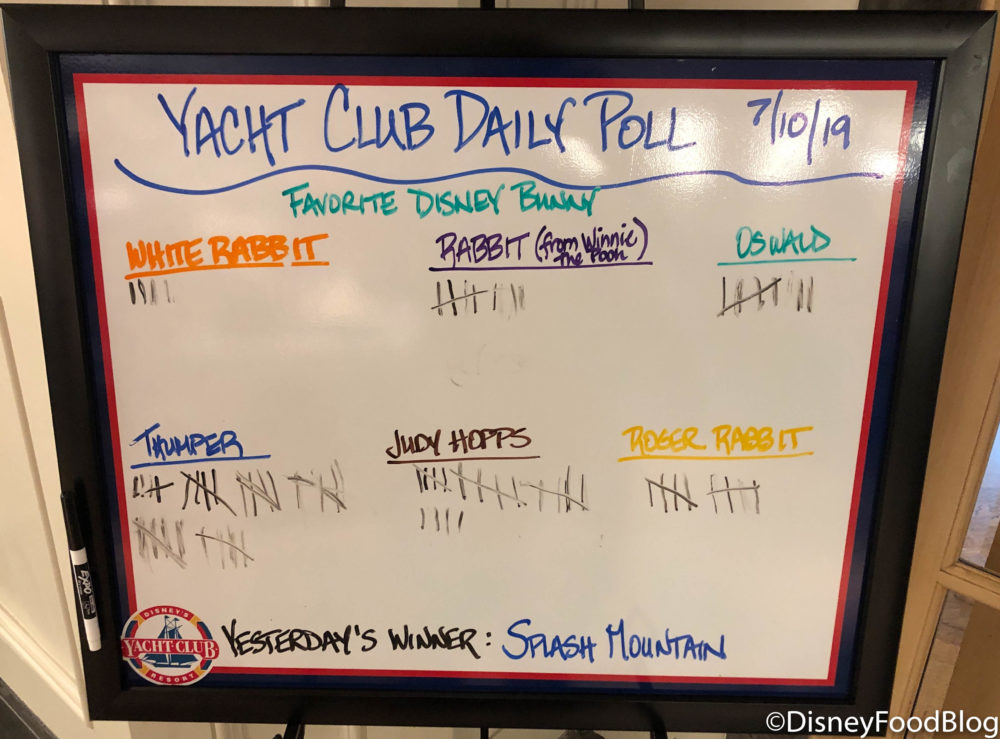 YACHT CLUB DAILY POLL 7/10/19
FAVORITE DISNEY BUNNY
WHITE RABBIT
RABBIT (from Winnie the Pooh)
OSWALD
THUMPER
JUDY HOPPS
ROGER RABBIT
EXPO
DISNEY'S
YACHT CLUB
RESORT
YESTERDAY'S WINNER: SPLASH MOUNTAIN
©DisneyFoodBlog